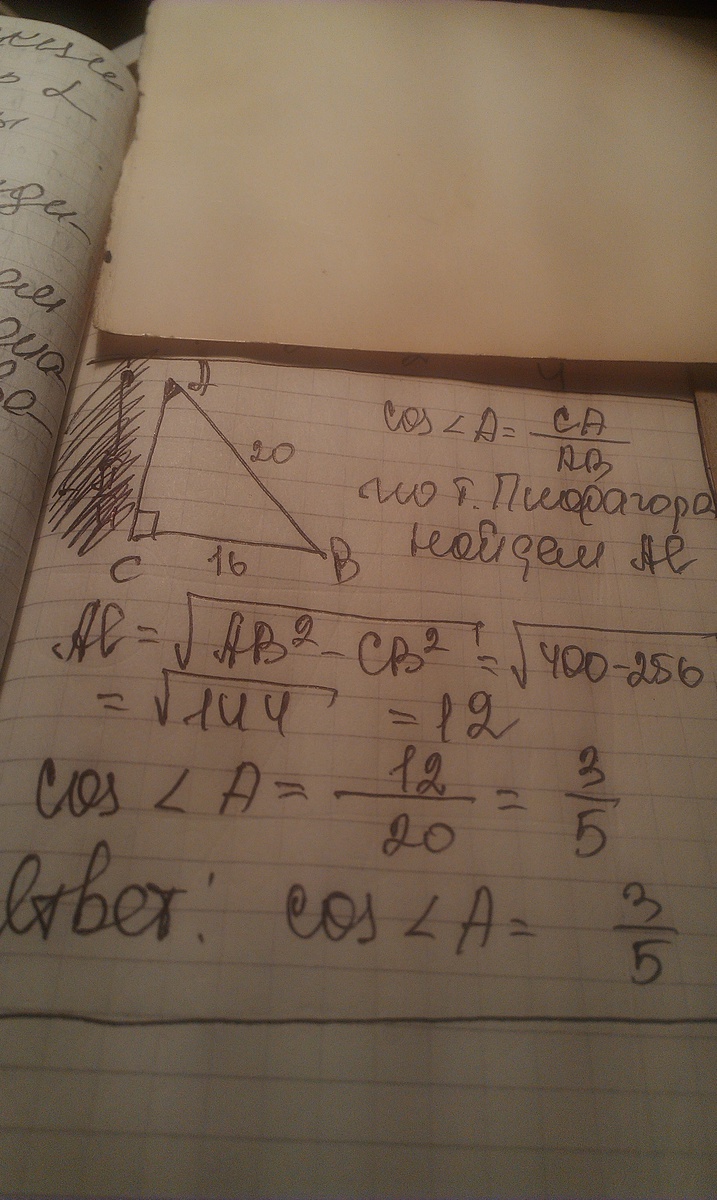 A
20
C
16
B
cos ∠A = CA/AB
по т. Пифагора
найдем AC
AC = √(AB² - CB²) = √(400-256)
= √144 = 12
cos ∠A = 12/20 = 3/5
Ответ: cos ∠A = 3/5